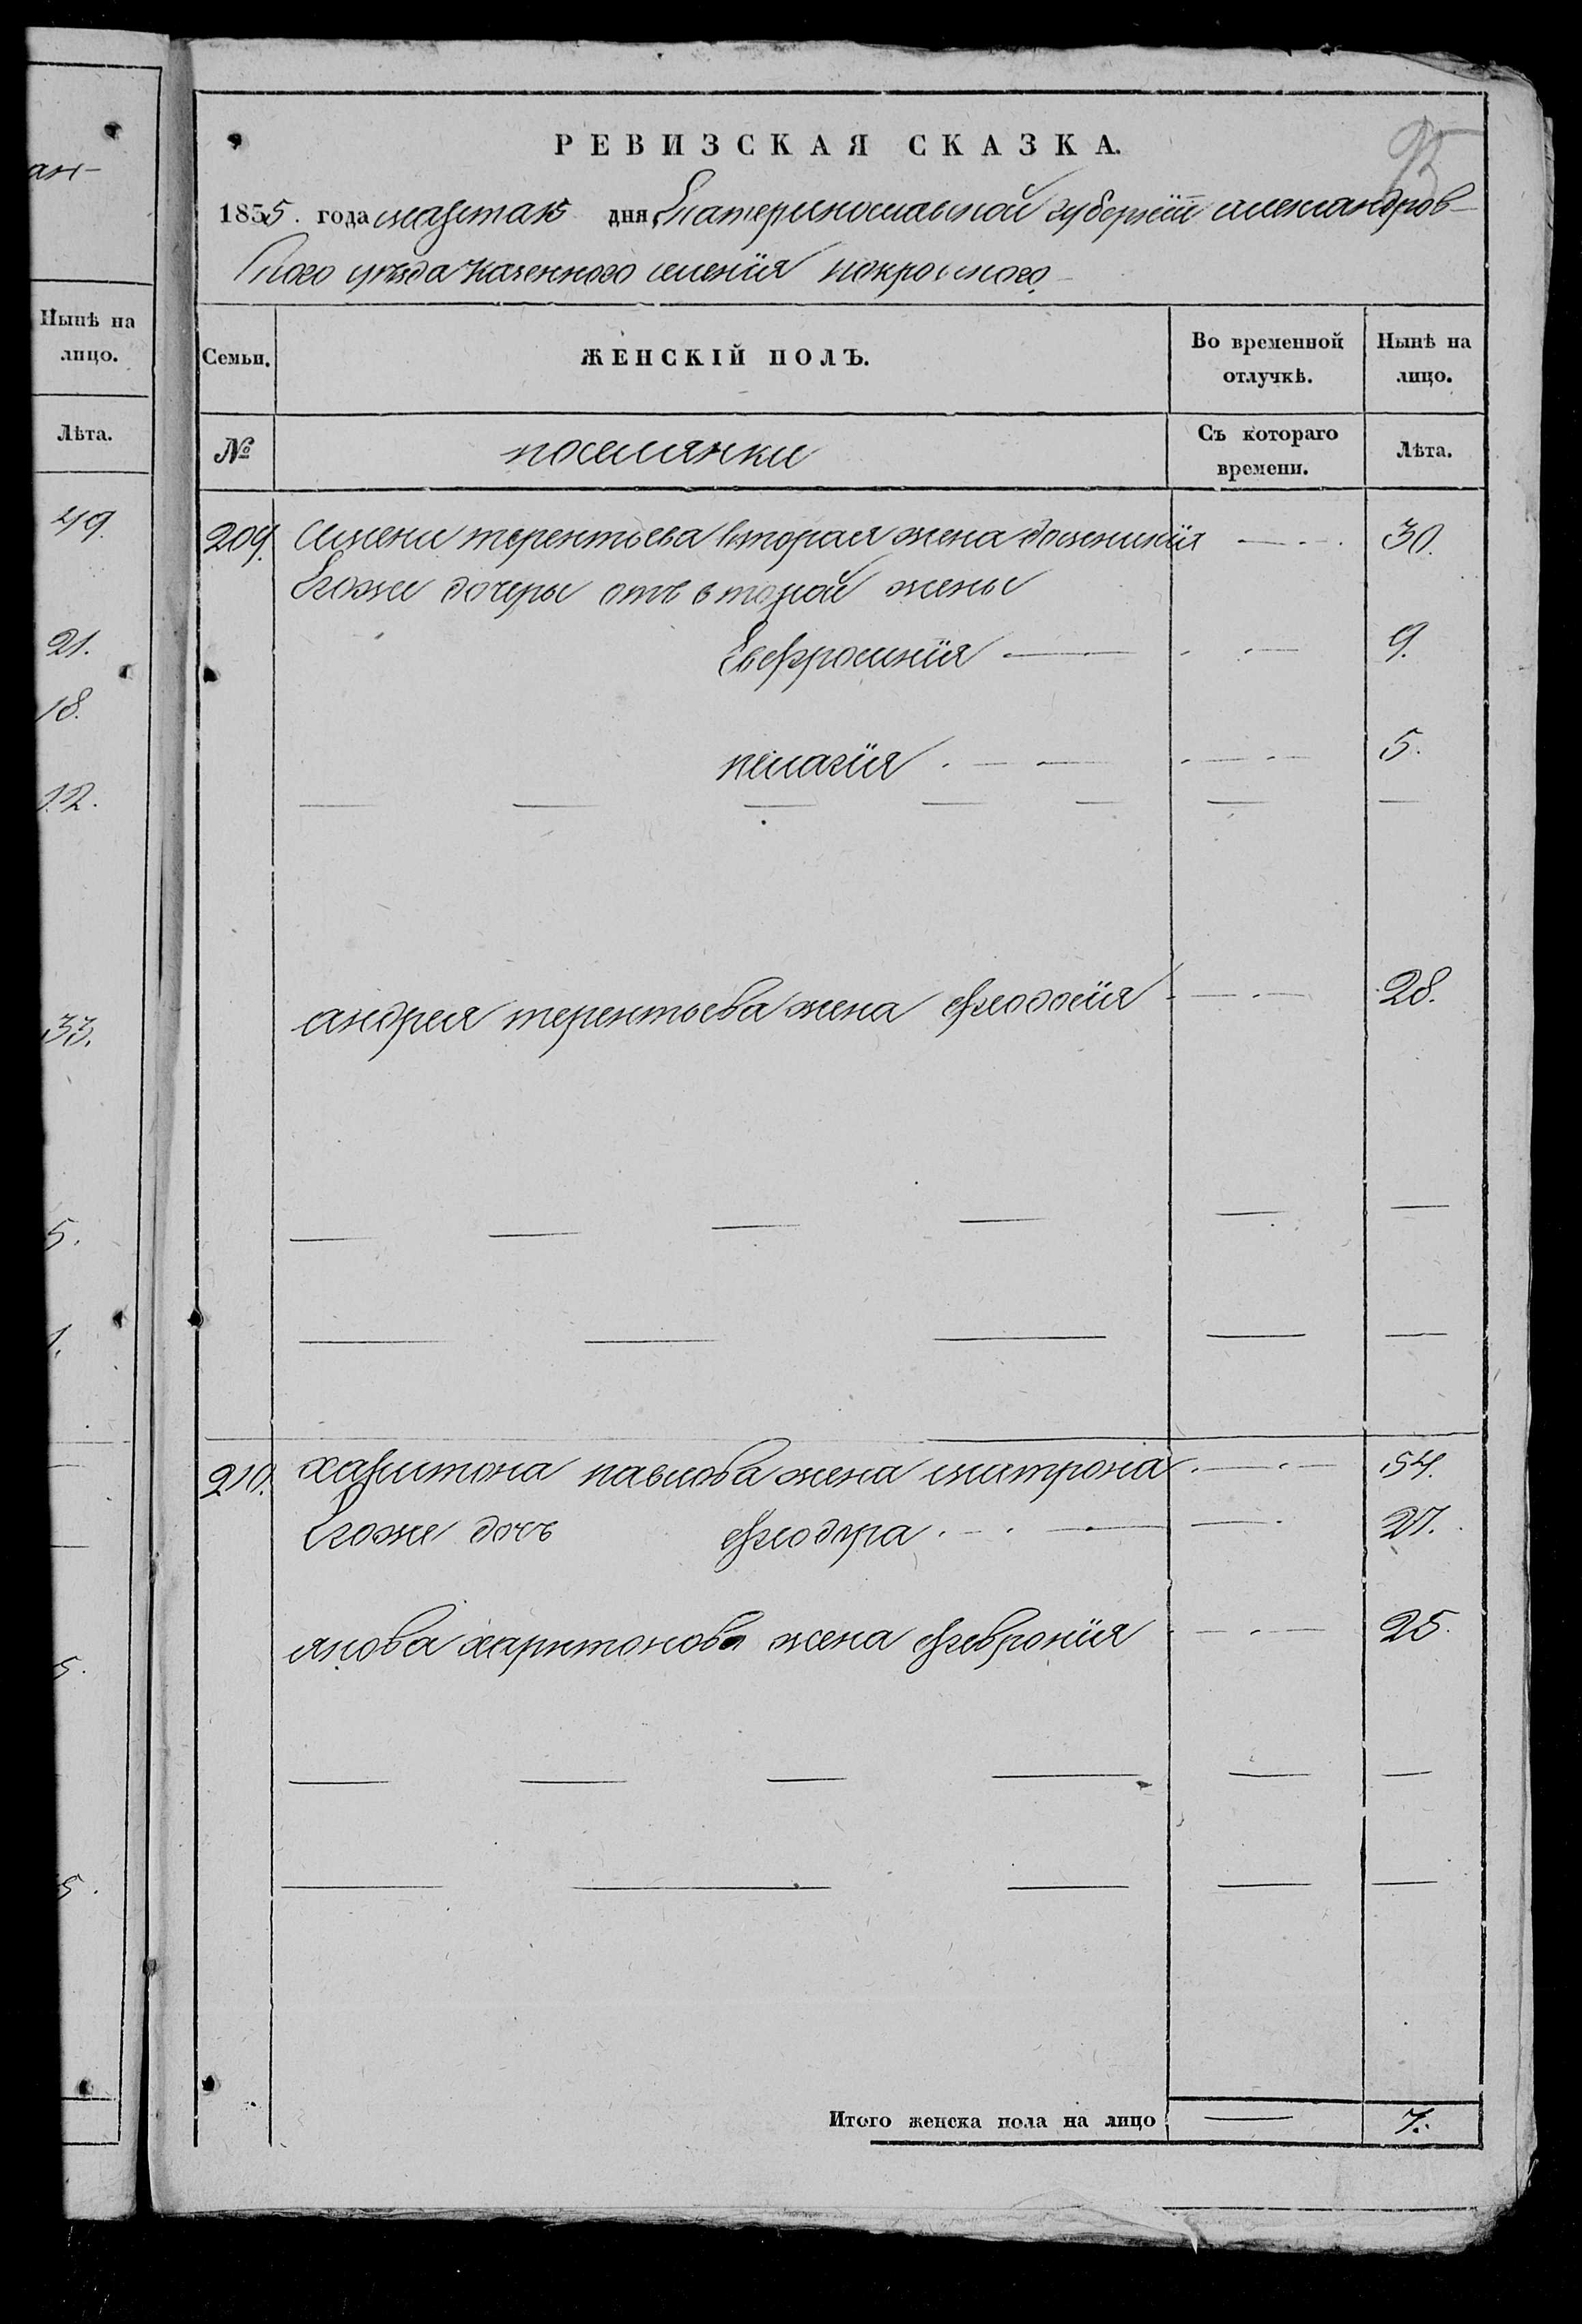 ан-
Нынѣ на
лицо.
Лѣта.
49.
21.
18.
12.
33.
5.
1.
5.
5.
РЕВИЗСКАЯ СКАЗКА.
1855. года марта 15 дня, Екатеринославской губернiи александров-
ского уѣзда казенного селенiя покровского
Семьи. ЖЕНСКІЙ ПОЛЪ. Во временной отлучкѣ. Нынѣ на лицо.
№ поселянки Съ котораго времени. Лѣта.
209. Семена терентьева вторая жена домникiя 30.
Егоже дочери отъ второй жены
Евфросинiя 9.
пелагiя 5.
андрея терентьева жена феодосiя 28.
210. харитона павлова жена матрона 54.
Егоже дочь феодора 27.
якова харитонова жена феврония 25.
Итого женска пола на лицо 7.